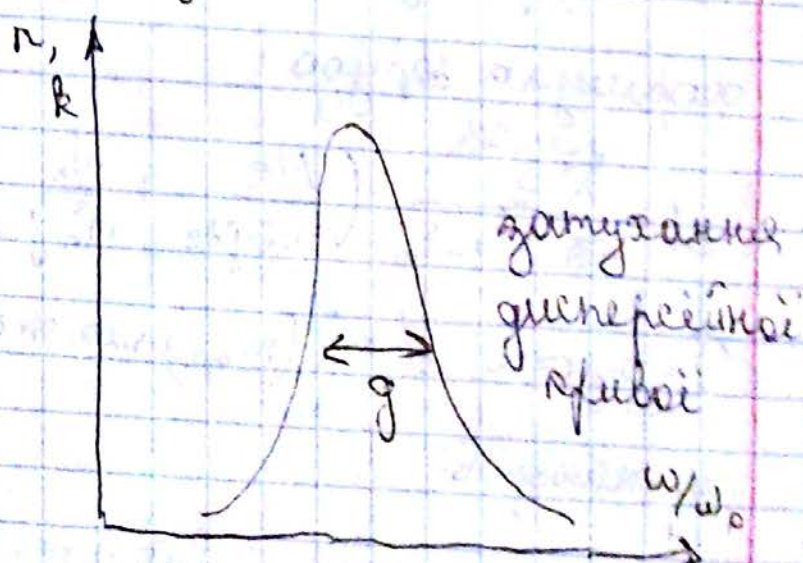 n,
k
затухання
дисперсійної
кривої
g
ω/ω₀